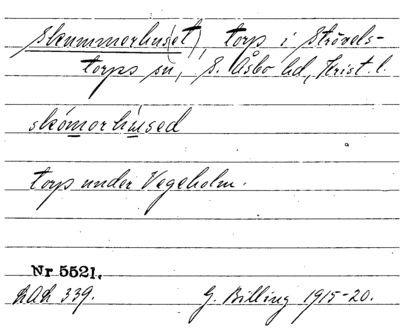 Skummorhus(et), torp i Strövels-
torps sn, S. Åsbo hd, Krist. l.
skómorhúsed
torp under Vegeholm.
Nr 5521.
LAL 339.
G. Billing 1915-20.